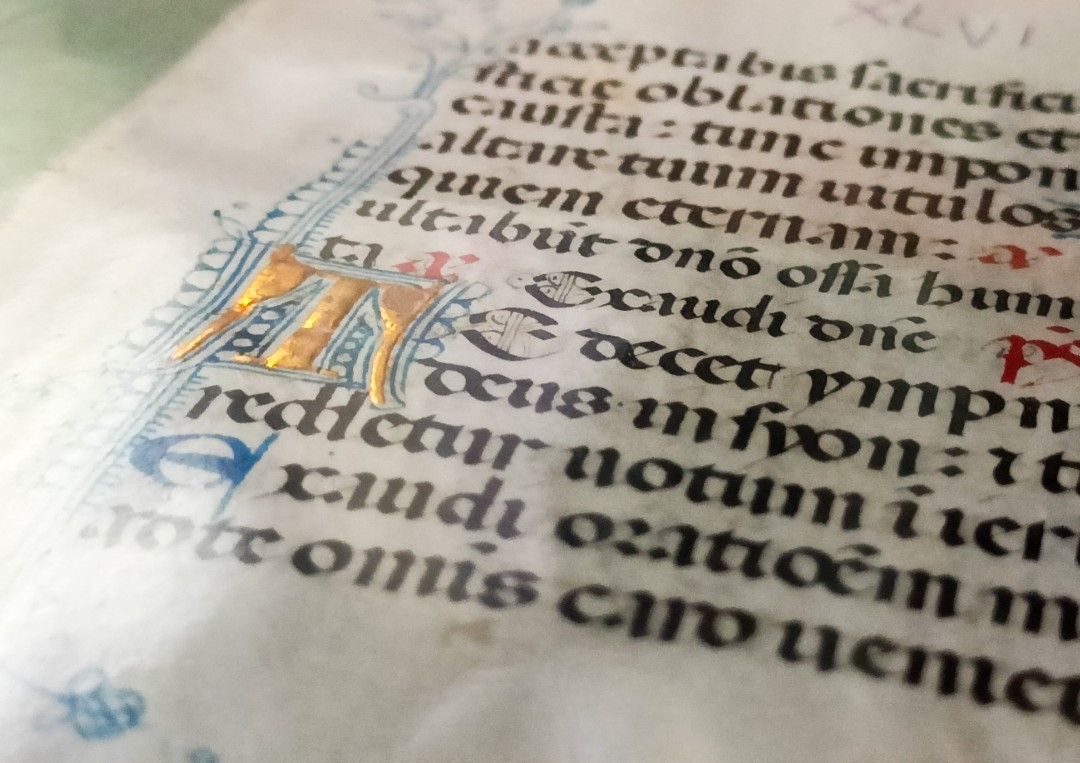 XLVI
acceptabis sacrifici
sticie oblationes et
causta : tunc impon
altare tuum uitulos
quiem eternam : a
ultabūt dnō ossa hum
ta a Exaudi dnē ps
TE decet ympn
deus in syon : ⁊ ti
reddetur uotum i ier
Exaudi oratioēm m
te omis caro uenie